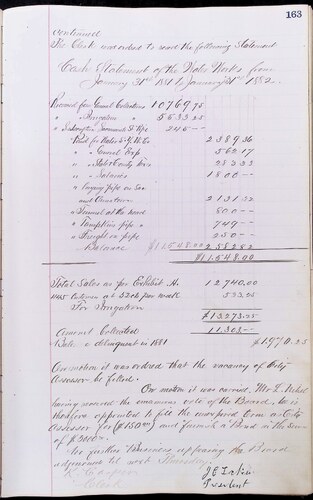 163
continued
The Clerk was ordered to read the following Statement
Cash Statement of the Water Works from
January 31st 1881 to January 31st 1882
Received from General Collections 10769.75
" " Irrigation " 5633.25
" " Sacramento St Pipe 245 --
Paid for Water 2389 36
" " General Exp 562 17
" " State & County Tax 233 32
" " Salaries 1800 --
" " Laying pipe on
and Chinatown 2131 32
" Tunnel at the head 800 --
" Pipe " 749 --
" Freight on pipe 250 --
Balance $11648.00 2582 82
$11,548.00
Total Sales as per Exhibit A. 12740.00
at per week 533.25
For Irrigation
$13273.25
Amount Collected 11.303 --
Bal. delinquent in 1881 $1970.25
On motion it was ordered that the vacancy of City
Assessor be filled.
On motion it was carried, Mr.
having received the unanimous vote of the Board, he is
therefore appointed to fill the unexpired term as City
Assessor for ($150 00) and furnish a Bond in the sum
of $3000 --
No further business appearing the Board
adjourned till next Thursday.
Clerk
President